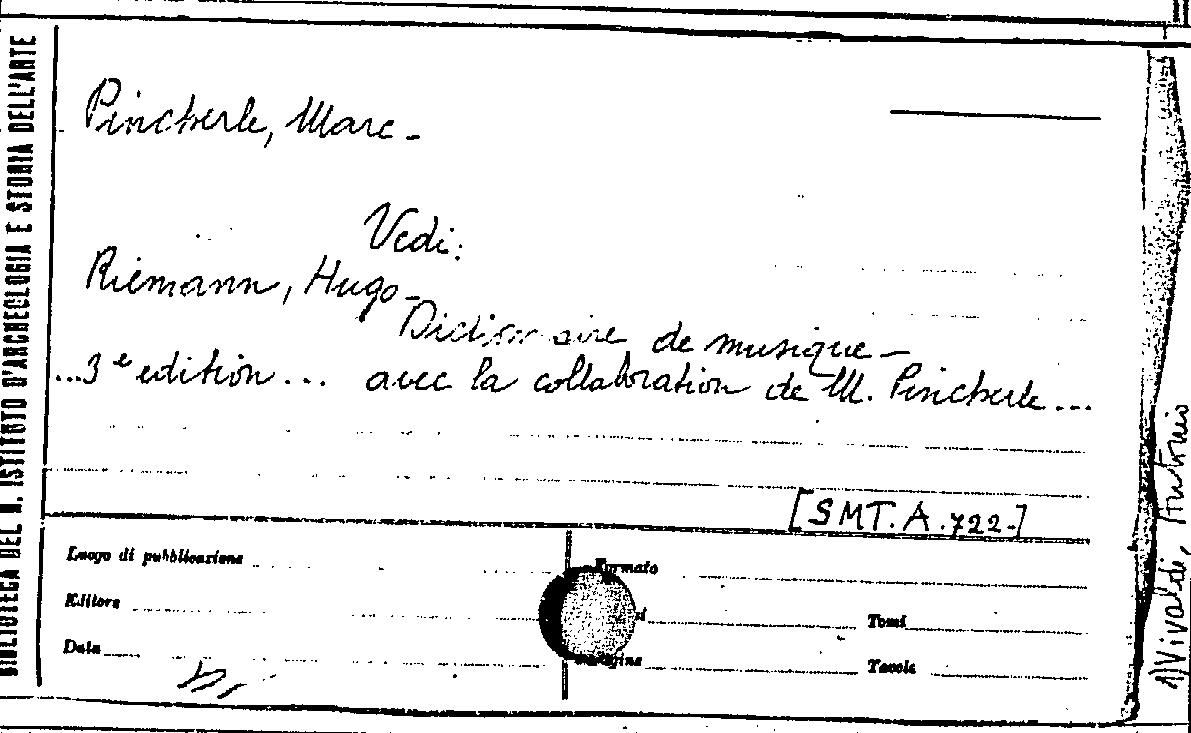 BIBLIOTECA DEL R. ISTITUTO D'ARCHEOLOGIA E STORIA DELL'ARTE
Pincherle, Marc -
Vedi:
Riemann, Hugo -
Dictionnaire de musique -
...3e edition... avec la collaboration de M. Pincherle...
[SMT.A.722-]
Luogo di pubblicazione
Formato
Editore
Tomi
Data
Pagine
Tavole
1) Vivaldi, Antonio